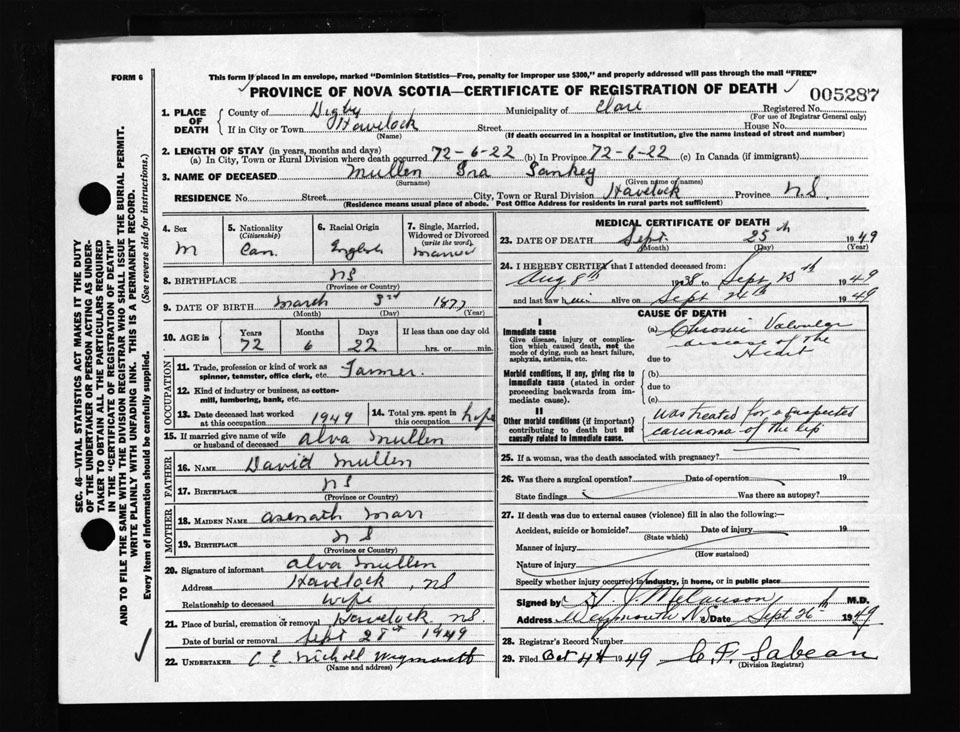 FORM 6
This form if placed in an envelope, marked "Dominion Statistics—Free, penalty for improper use $300," and properly addressed will pass through the mail "FREE"
PROVINCE OF NOVA SCOTIA—CERTIFICATE OF REGISTRATION OF DEATH
005287
1. PLACE OF DEATH
County of Digby Municipality of Clare Registered No.
(For use of Registrar General only)
If in City or Town Havelock Street House No.
(Name) (If death occurred in a hospital or institution, give the name instead of street and number)
2. LENGTH OF STAY (in years, months and days)
(a) In City, Town or Rural Division where death occurred 72-6-22 (b) In Province 72-6-22 (c) In Canada (if immigrant)
3. NAME OF DECEASED Mullen Ira Sankey
(Surname) (Given name or names)
RESIDENCE No. Street City, Town or Rural Division Havelock Province N.S.
(Residence means usual place of abode. Post Office Address for residents in rural parts not sufficient)
4. Sex
M
5. Nationality
(Citizenship)
Can.
6. Racial Origin
English
7. Single, Married, Widowed or Divorced
(write the word)
Married
8. BIRTHPLACE NS
(Province or Country)
9. DATE OF BIRTH March 3rd 1877
(Month) (Day) (Year)
10. AGE in
Years Months Days If less than one day old
72 6 22 hrs. or min.
OCCUPATION
11. Trade, profession or kind of work as Farmer.
spinner, teamster, office clerk, etc.
12. Kind of industry or business, as cotton-
mill, lumbering, bank, etc.
13. Date deceased last worked
at this occupation 1949
14. Total yrs. spent in
this occupation
15. If married give name of wife
or husband of deceased Alva Mullen
FATHER
16. NAME David Mullen
17. BIRTHPLACE NS
(Province or Country)
MOTHER
18. MAIDEN NAME Asenath Marr
19. BIRTHPLACE NS
(Province or Country)
20. Signature of informant Alva Mullen
Address Havelock, NS
Relationship to deceased wife
21. Place of burial, cremation or removal Havelock NS.
Date of burial or removal Sept 28th 1949
22. UNDERTAKER C.C. Nicholl Weymouth
(Name and address)
MEDICAL CERTIFICATE OF DEATH
23. DATE OF DEATH Sept. 25th 1949
(Month) (Day) (Year)
24. I HEREBY CERTIFY that I attended deceased from:
Aug 8th 1938 to Sept 25th 1949
and last saw him alive on Sept 24th 1949
CAUSE OF DEATH
I
Immediate cause
Give disease, injury or complica-
tion which caused death, not the
mode of dying, such as heart failure,
asphyxia, asthenia, etc.
(a) Chronic Valvular
disease of the
Heart
due to
Morbid conditions, if any, giving rise to
immediate cause (stated in order
proceeding backwards from im-
mediate cause).
(b)
due to
(c)
II
Other morbid conditions (if important)
contributing to death but not
causally related to immediate cause.
Was treated for a suspected
carcinoma of the lip
25. If a woman, was the death associated with pregnancy?
26. Was there a surgical operation? Date of operation 19
State findings Was there an autopsy?
27. If death was due to external causes (violence) fill in also the following:—
Accident, suicide or homicide? Date of injury 19
(State which)
Manner of injury
(How sustained)
Nature of injury
Specify whether injury occurred in industry, in home, or in public place
Signed by H. J. Melanson M.D.
Address Weymouth NS Date Sept 26th 1949
28. Registrar's Record Number
29. Filed Oct 4th 1949 C. F. Sabean
(Division Registrar)
SEC. 46—VITAL STATISTICS ACT MAKES IT THE DUTY
OF THE UNDERTAKER OR PERSON ACTING AS UNDER-
TAKER TO OBTAIN ALL THE PARTICULARS REQUIRED
IN THE "CERTIFICATE OF REGISTRATION OF DEATH"
AND TO FILE THE SAME WITH THE DIVISION REGISTRAR WHO SHALL ISSUE THE BURIAL PERMIT.
WRITE PLAINLY WITH UNFADING INK. THIS IS A PERMANENT RECORD.
Every item of information should be carefully supplied. (See reverse side for instructions.)